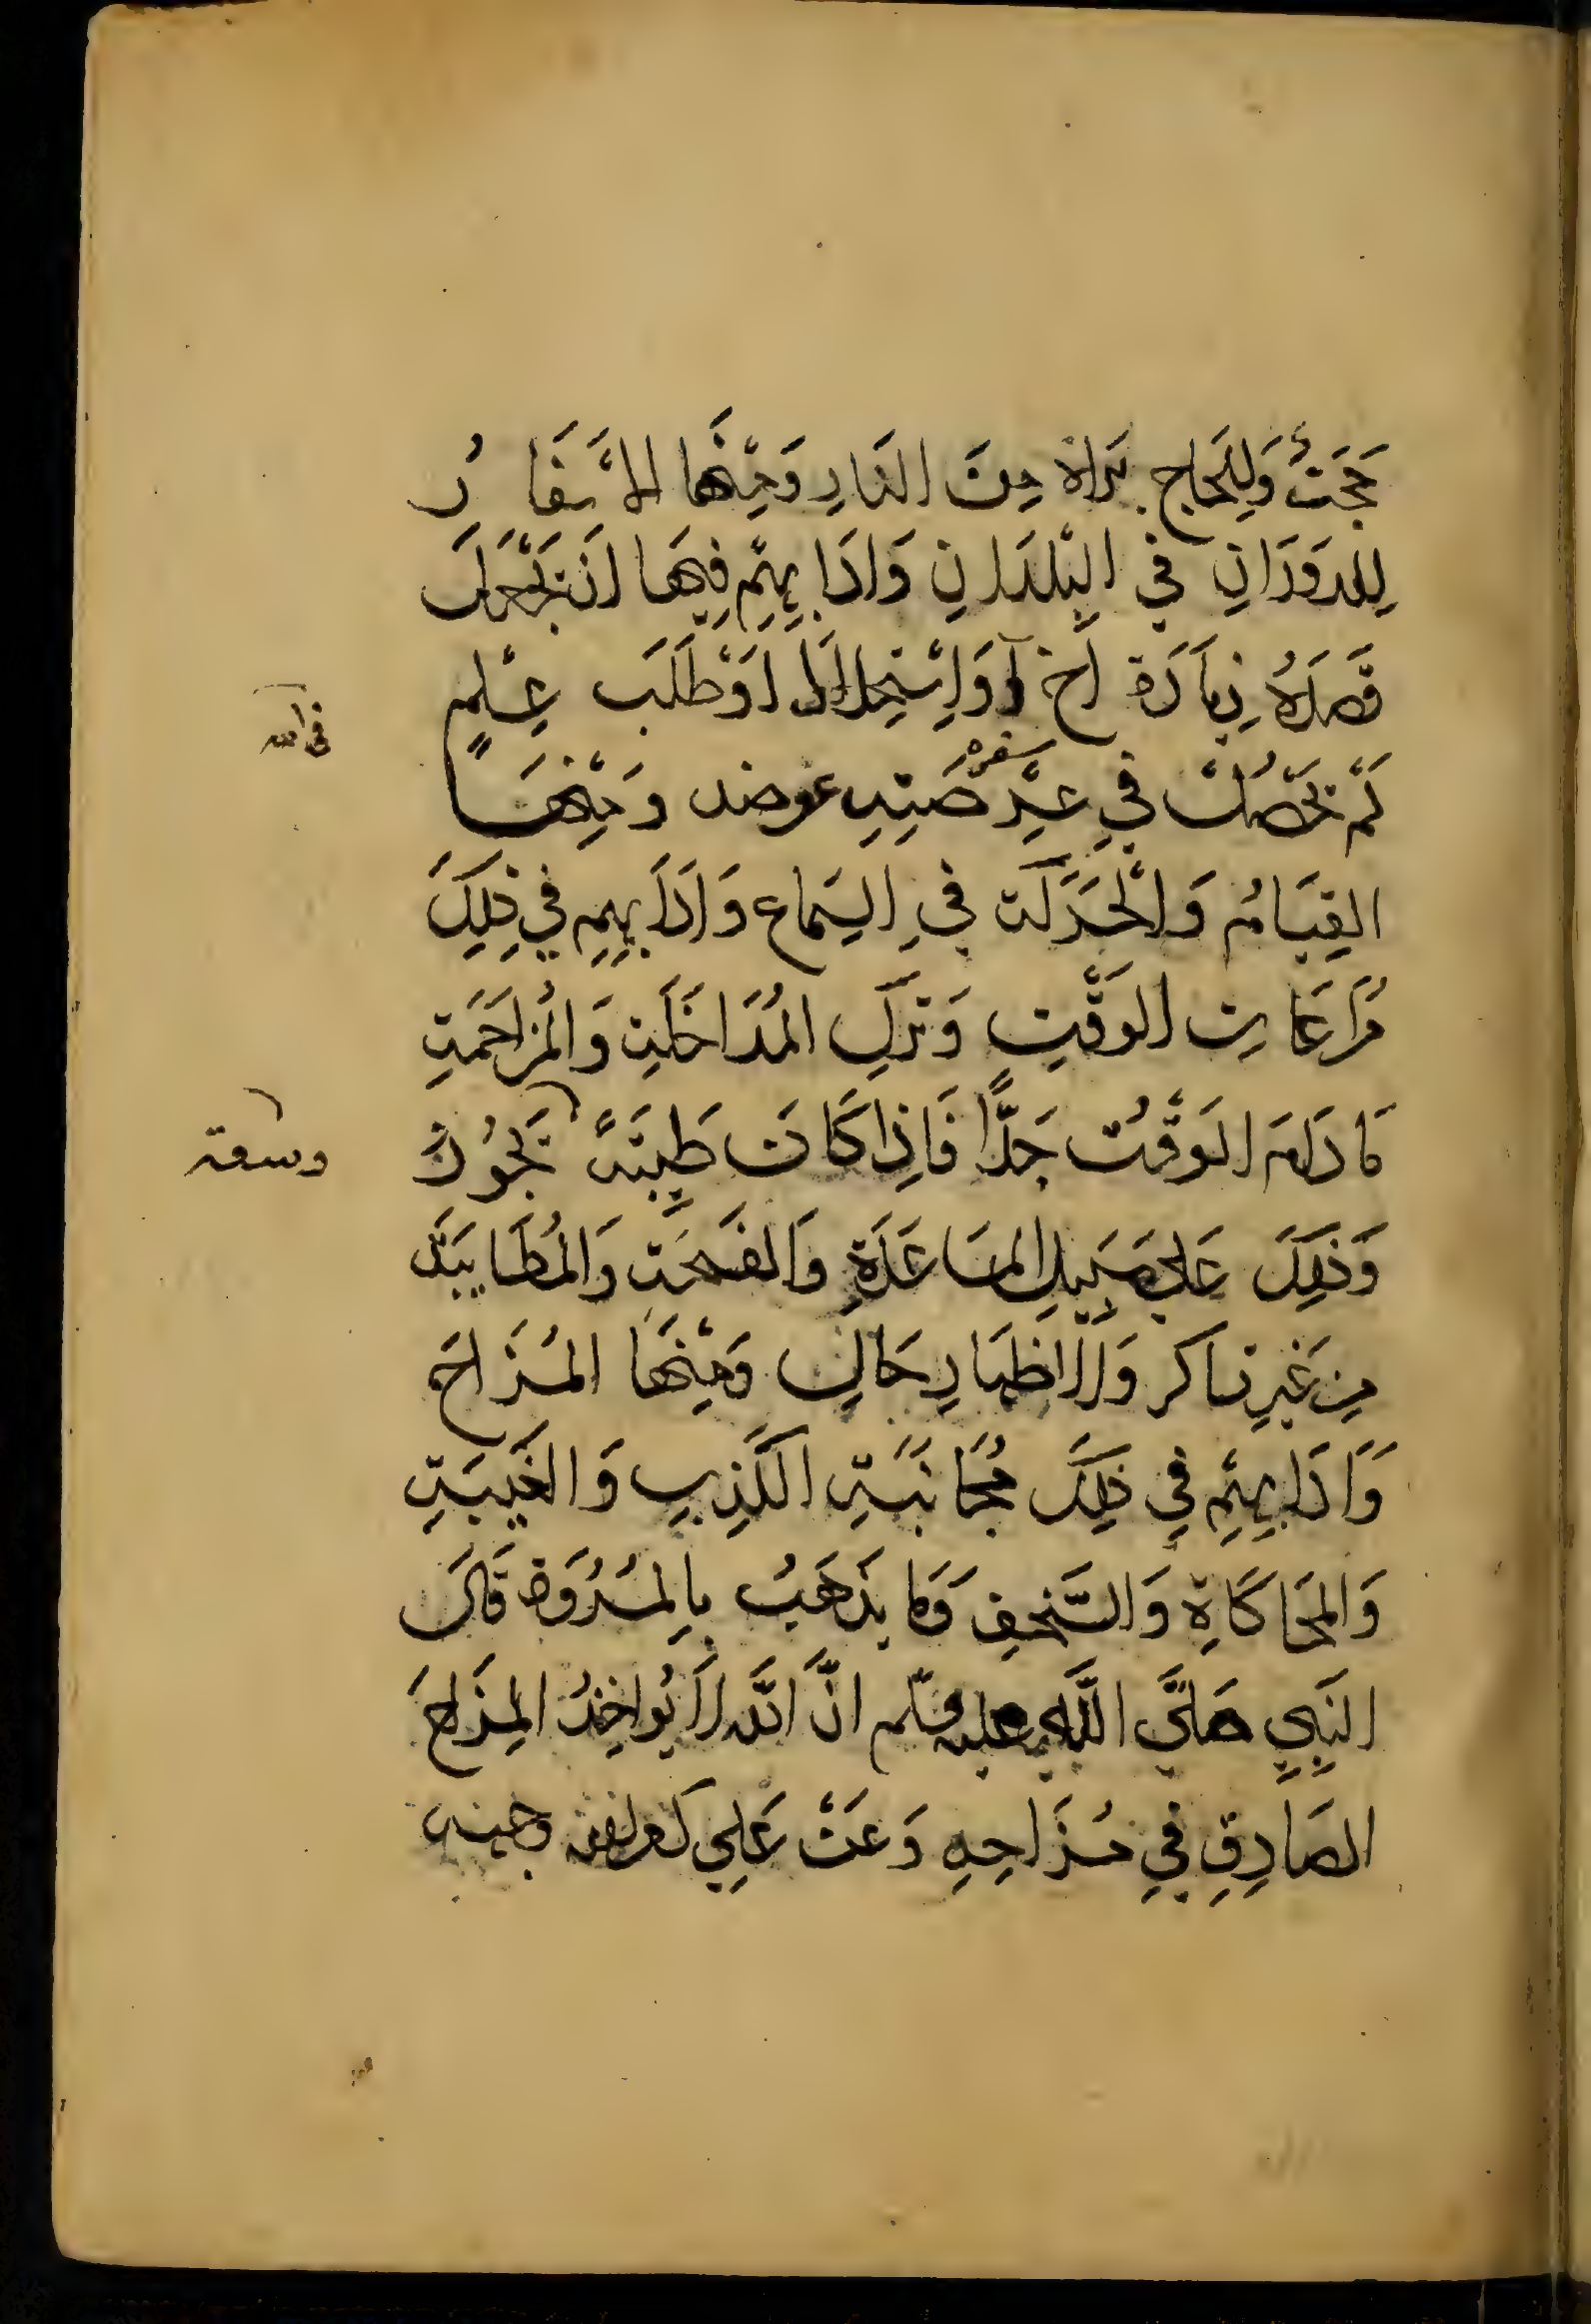 حَجَتُ وَلِلحَاجِ بَراه مِنَ النَارِ وَمِنْهَا الاسفَارُ
لِلدَوَرَانِ فِي البُلْدَانِ وَادَابِهِمْ فِيهَا اَنْ يَجْعَلَ
قَصدَهُ زِيَارَة اَخ اَوْ اِسْتِحلالَا اَوْ طَلَب عِلمٍ
لَمْ يَحْصُلْ فِي
سفره
عوضه وَمِنْهَا
القِيَامُ وَالْحَرَكَة فِي السَماع وَادَابِهِم فِي ذَلِكَ
مُرَاعَات الوَقْتِ وَتَركِ المُدَاخَلَةِ وَالمُزَاحَمَةِ
مَا دَامَ الوَقْتُ جَدًّا فَاِذَا كَانَ طَيِبَةً يَجُوزُ
وَذَلِكَ عَلَى سَبِيلِ المسَاعَدَةِ وَالفسحَة وَالمُطَايَبَة
مِن غَيرِ تساكر وَلَا اظهَارِ حَالٍ وَمِنْهَا المُزَاحَ
وَادَابِهِمْ فِي ذَلِكَ مُجَانَبَةِ الكَذِبِ وَالغَيبَةِ
وَالمحَاكَاةِ وَالسَّخفِ وَمَا يَذهَبُ بِالمُرُوَة قَالَ
النَبِي صَلَّي اللَّه عليه وسلم انَّ اللَّه لَا يُوَاخِذُ المِزَاحَ
الصَادِقِ فِي مُزَاحِهِ وَعَنْ عَلِي كرم الله وجهه
في الله
وسعة